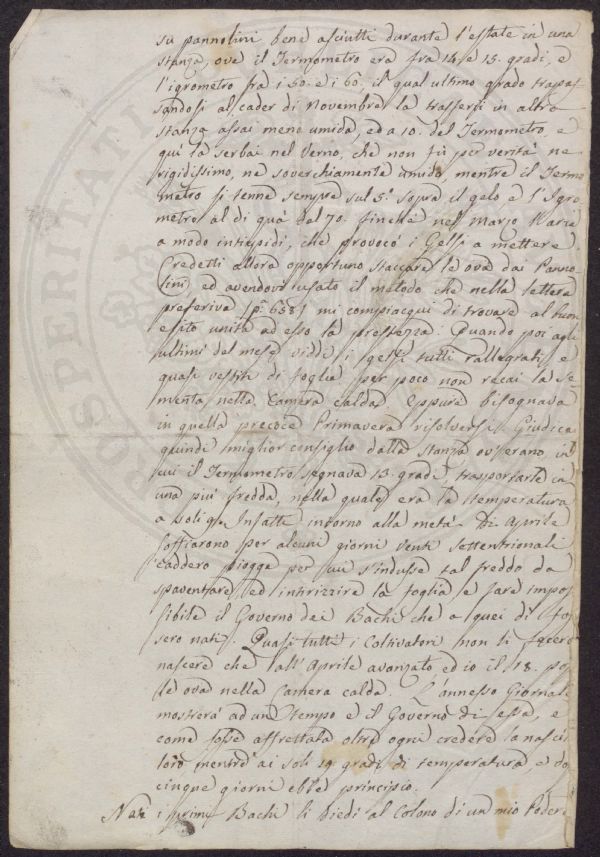 su pannolini bene asciutti durante l'estate in una
stanza, ove il Termometro era fra 14. e 15. gradi, e
l'igrometro fra i 50. e i 60. il qual ultimo grado trapas-
sandosi al cader di Novembre la trasferii in altra
stanza assai meno umida, ed a 10. del Termometro, e
quì la serbai nel Verno, che non fù per verità ne
rigidissimo, ne soverchiamente umido, mentre il Termo
metro si tenne sempre sul 5.° sopra il gelo e l'Igro
metro al di quà dal 70. finchè nel Marzo l'aria
a modo intiepidì, che provocò i Gelsi a mettere.
Credetti allora opportuno staccare le ova dai Panno-
lini, ed avendovi usato il metodo che nella lettera
preferiva (p. 638) mi compiacqui di trovare al buon
esito unita ad esso la prestezza. Quando poi agli
ultimi del mese viddi i gelsi tutti rallegrati, e
quasi vestiti di foglia per poco non recai la Se
menta nella Camera calda. Eppure bisognava
in quella precoce Primavera risolversi. Giudicai
quindi miglior consiglio dalla stanza ov'erano, in
cui il Termometro segnava 13. gradi trasportarle in
una più fredda, nella quale era la temperatura
a soli 9. Infatti intorno alla metà di Aprile
soffiarono per alcuni giorni venti settentrionali
caddero piogge per cui s'indusse tal freddo da
spaventare, ed intirizzire la foglia e fare impos
sibile il Governo dei Bachi che a quei dì fos
sero nati. Quasi tutti i Coltivatori non li fecero
nascere che all'Aprile avanzato ed io il 18. posi
le ova nella Camera calda. L'annesso Giornale
mostrerà ad un tempo e il Governo di essa, e
come fosse affrettata oltre ogni credere la nascita
loro, mentre ai soli 19 gradi di temperatura, e do
cinque giorni ebbe principio.
Nati i primi Bachi li diedi al Colono di un mio Podere